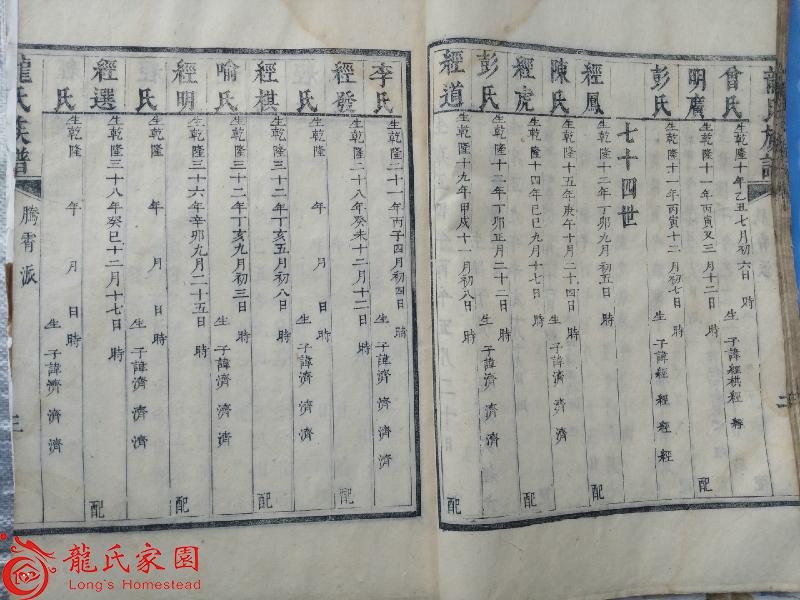 龍氏族譜
二
曾氏 生乾隆十年乙丑七月初六日 時 生 子諱經棋經 經
明廣 生乾隆十一年丙寅又三月十二日 時 配
彭氏 生乾隆十一年丙寅十二月初七日 時 生 子諱經 經 經
七十四世
經鳳 生乾隆十二年丁卯九月初五日 時 配
陳氏 生乾隆十五年庚午十月二十四日 時 生 子諱濟 濟 濟
經虎 生乾隆十四年己巳九月十七日 時 配
彭氏 生乾隆二十二年丁卯正月二十二日 時 生 子諱濟 濟 濟
經道 生乾隆十九年甲戌十一月初八日 時 配
李氏 生乾隆二十一年丙子四月初四日 時 生 子諱濟 濟 濟
經發 生乾隆二十八年癸未十二月十二日 時 配
氏 生乾隆 年 月 日 時 生 子諱濟 濟 濟
經棋 生乾隆三十二年丁亥五月初八日 時 配
喻氏 生乾隆三十二年丁亥九月初三日 時 生 子諱濟 濟 濟
經明 生乾隆三十六年辛卯九月二十五日 時 配
氏 生乾隆 年 月 日 時 生 子諱濟 濟 濟
經選 生乾隆三十八年癸巳十二月十七日 時 配
氏 生乾隆 年 月 日 時 生 子諱濟 濟 濟
龍氏族譜
騰霄派
三
龍氏家園
Long's Homestead